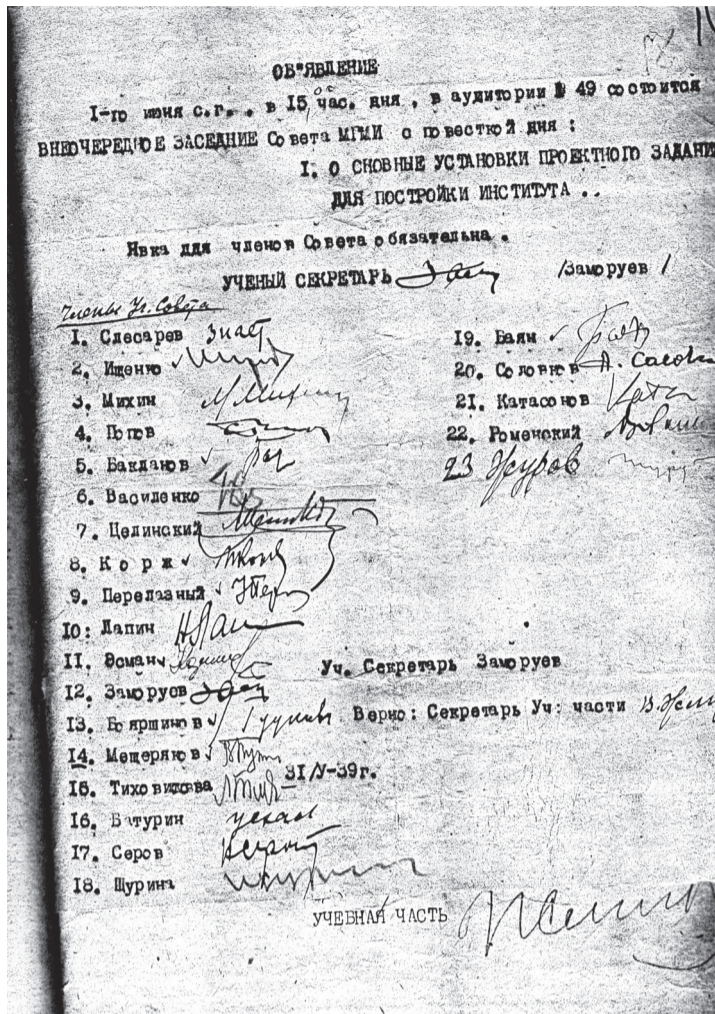 ОБ"ЯВЛЕНИЕ
I-го июня с.г.. в 15 00 час. дня, в аудитории № 49 состоится
ВНЕОЧЕРЕДНОЕ ЗАСЕДАНИЕ Совета МГМИ с повесткой дня :
I. О СНОВНЫЕ УСТАНОВКИ ПРОЕКТНОГО ЗАДАНИ
ДЛЯ ПОСТРОЙКИ ИНСТИТУТА ..
Явка для членов Совета обязательна.
УЧЕНЫЙ СЕКРЕТАРЬ /Заморуев /
Члены Уч. Совета
1. Слесарев знает
2. Ищенко
3. Михин М Михин
4. Попов
5. Бакланов
6. Василенко
7. Целинский
8. К о р ж
9. Перелазный
10: Лапин Н Лап
11. Эсман
12. Заморуев
13. Бояршинов
14. Мещеряков
15. Тиховидова
16. Батурин уехал
17. Серов
18. Щурина
19. Баян
20. Соловьев
21. Катасонов Ката
22. Роменский
23 Журов
Уч. Секретарь Заморуев
Верно: Секретарь Уч: части
31/У-39г.
УЧЕБНАЯ ЧАСТЬ